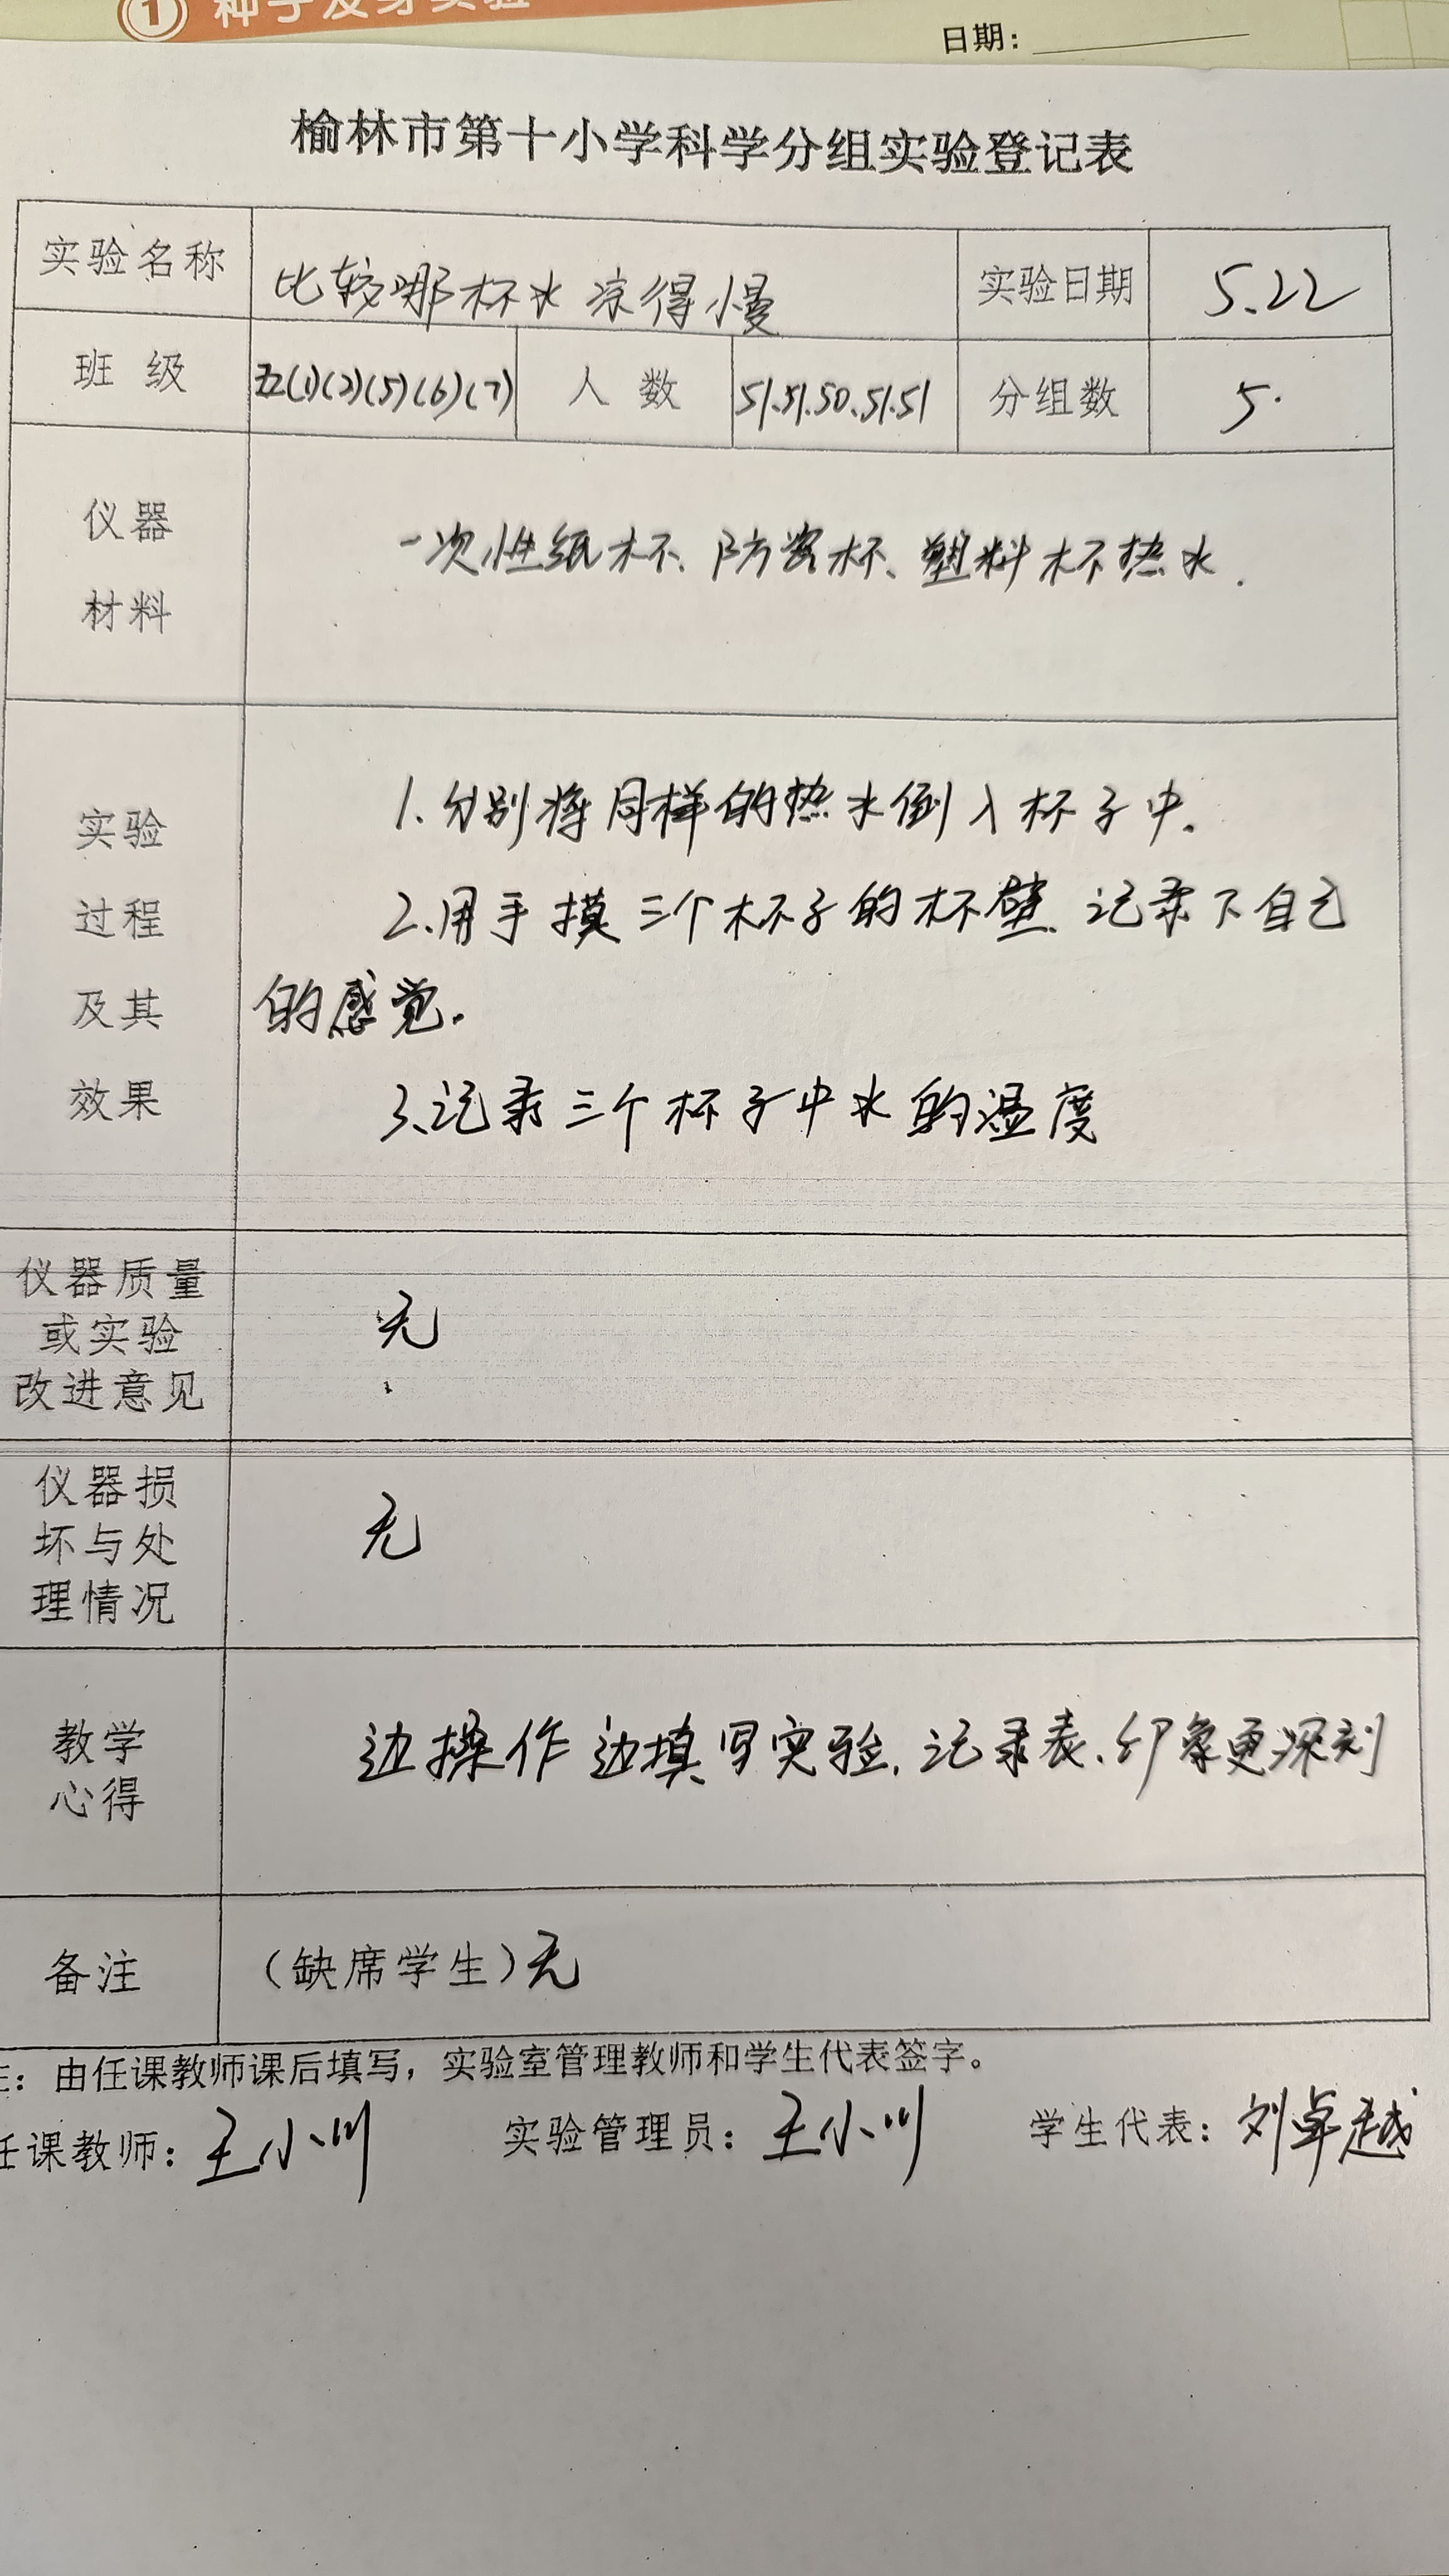 1 种子发芽实验
日期：
榆林市第十小学科学分组实验登记表
实验名称 比较哪杯水凉得慢 实验日期 5.22
班 级 五(1)(2)(5)(6)(7) 人 数 51.51.50.51.51 分组数 5.
仪器
材料
一次性纸杯、防溶杯、塑料杯热水.
实验
过程
及其
效果
1.分别将同样的热水倒入杯子中.
2.用手摸三个杯子的杯壁.记录下自己
的感觉.
3.记录三个杯子中水的温度
仪器质量
或实验
改进意见
无
仪器损
坏与处
理情况
无
教学
心得
边操作边填写实验.记录表、印象更深刻
备注 （缺席学生）无
注：由任课教师课后填写，实验室管理教师和学生代表签字。
任课教师：王小川 实验管理员：王小川 学生代表：刘卓越